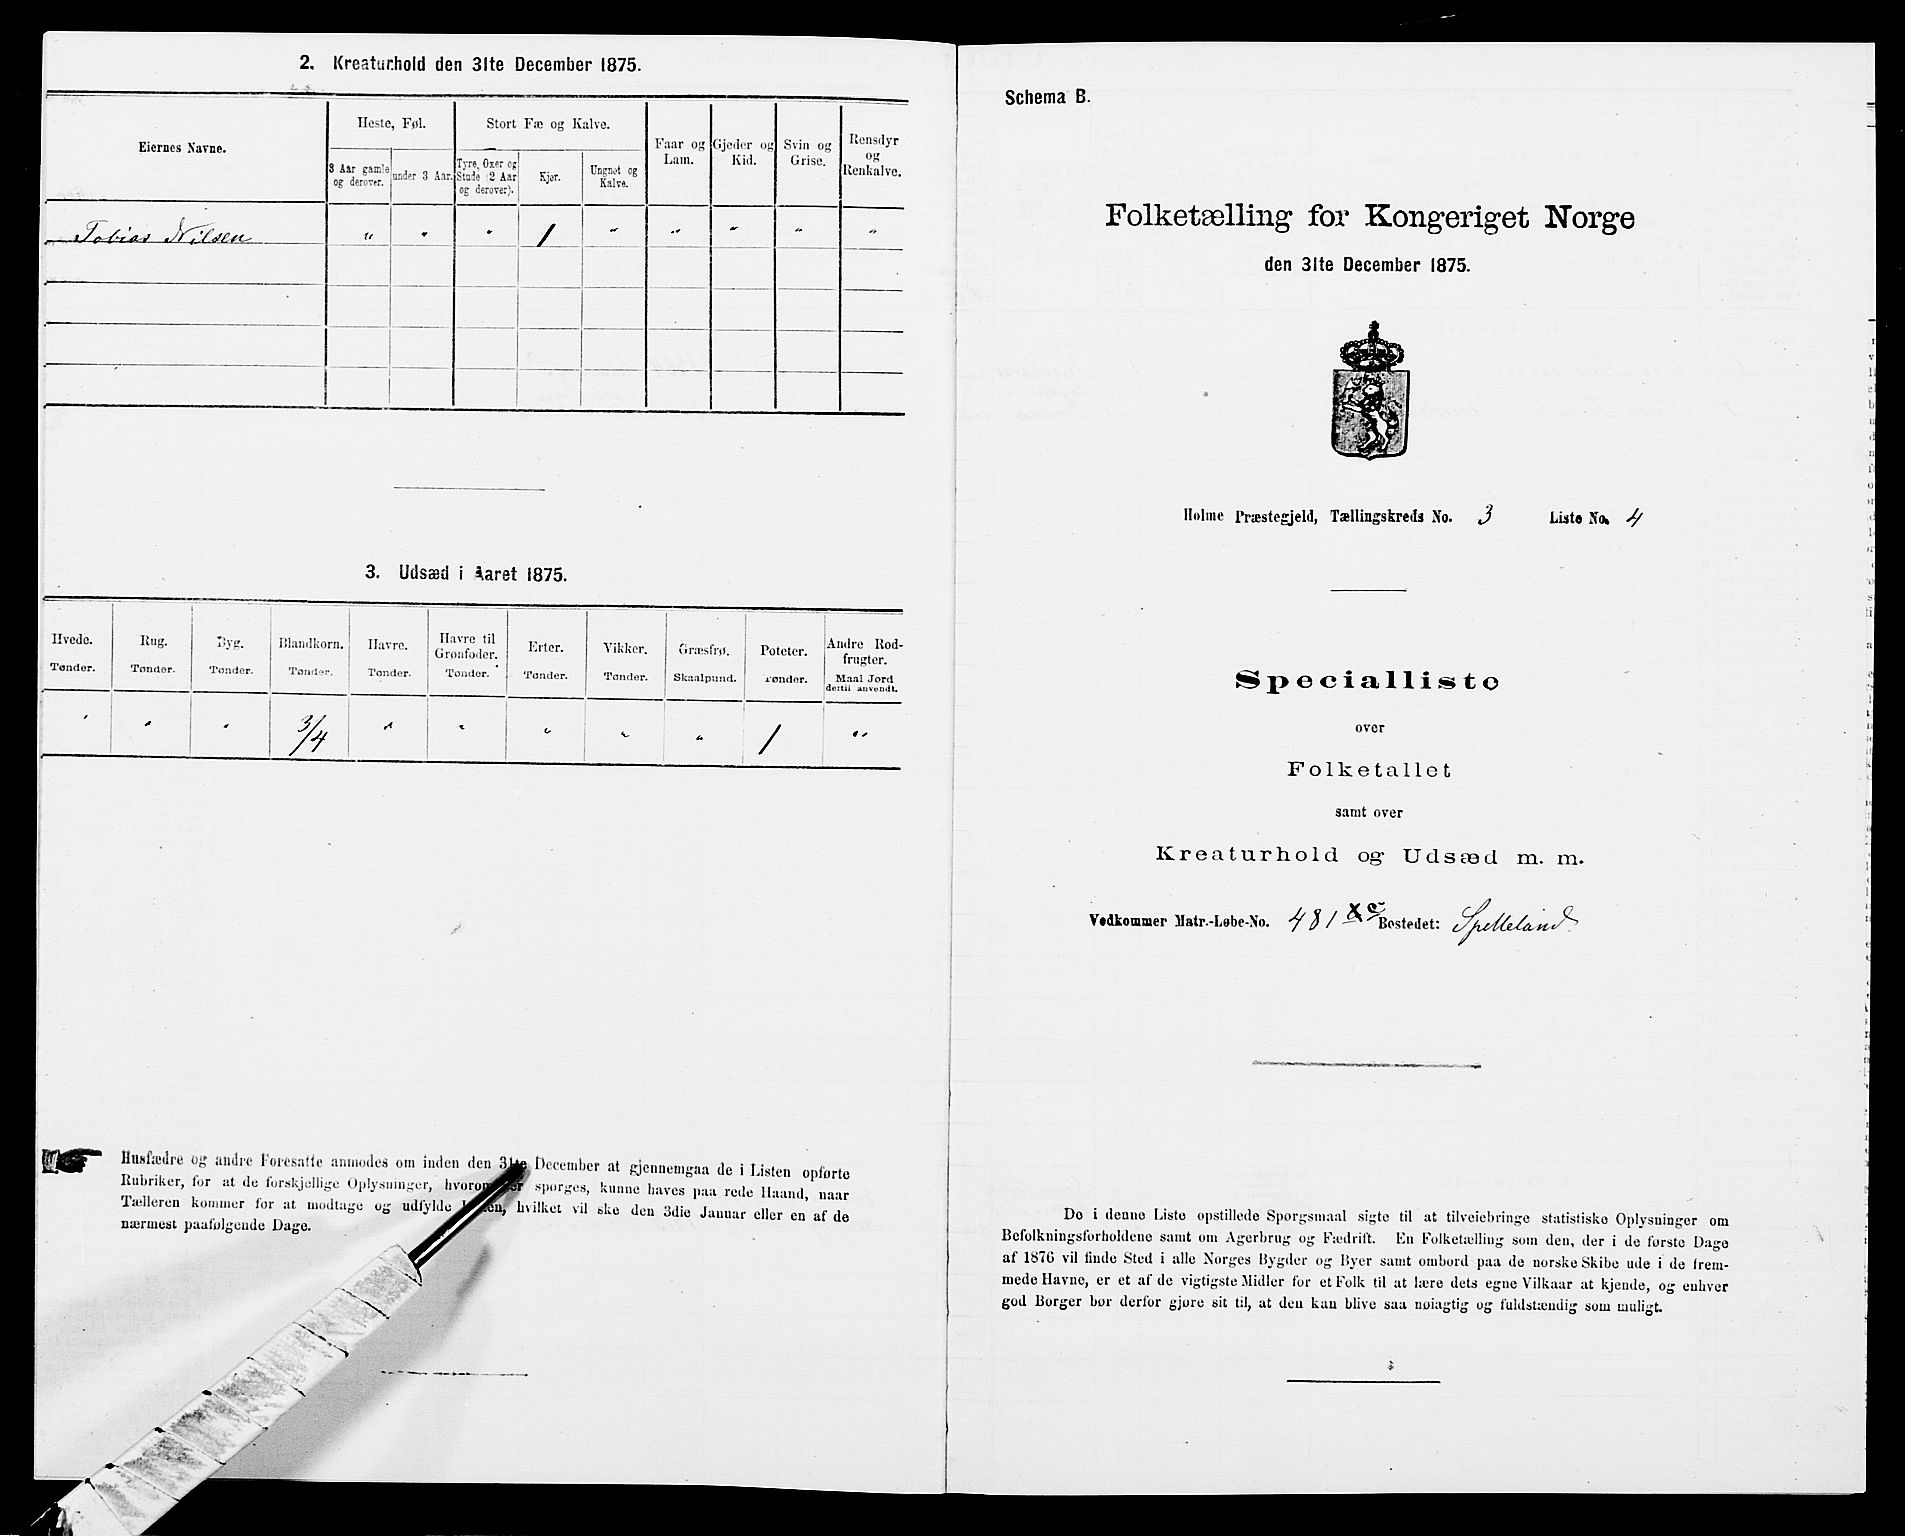 2. Kreaturhold den 31te December 1875.
Eiernes Navne.
Heste, Føl.
Stort Fæ og Kalve.
Faar og Lam.
Gjeder og Kid.
Svin og Grise.
Rensdyr og Renkalve.
3 Aar gamle og derover.
under 3 Aar.
Tyre, Oxer og Stude (2 Aar og derover).
Kjør.
Ungnøt og Kalve.
Tobias Nilsen " " " 1 " " " " "
3. Udsæd i Aaret 1875.
Hvede. Rug. Byg. Blandkorn. Havre. Havre til Grønfoder. Erter. Vikker. Græsfrø. Poteter. Andre Rodfrugter.
Tønder. Tønder. Tønder. Tønder. Tønder. Tønder. Tønder. Tønder. Skaalpund. Tønder. Maal Jord dertil anvendt.
" " " 3/4 " " " " " 1 "
Husfædre og andre Foresatte anmodes om inden den 31te December at gjennemgaa de i Listen opførte
Rubriker, for at de forskjellige Oplysninger, spørges, kunne haves paa rede Haand, naar
Tælleren kommer for at modtage og udfylde hvilket vil ske den 3die Januar eller en af de
nærmest paafølgende Dage.
Schema B.
Folketælling for Kongeriget Norge
den 31te December 1875.
Holme Præstegjeld, Tællingskreds No. 3 Liste No. 4
Specialliste
over
Folketallet
samt over
Kreaturhold og Udsæd m. m.
Vedkommer Matr.-Løbe-No. 481 c Bostedet: Spelleland
De i denne Liste opstillede Spørgsmaal sigte til at tilveiebringe statistiske Oplysninger om
Befolkningsforholdene samt om Agerbrug og Fædrift. En Folketælling som den, der i de første Dage
af 1876 vil finde Sted i alle Norges Bygder og Byer samt ombord paa de norske Skibe ude i de frem-
mede Havne, er et af de vigtigste Midler for et Folk til at lære dets egne Vilkaar at kjende, og enhver
god Borger bør derfor gjøre sit til, at den kan blive saa nøiagtig og fuldstændig som muligt.